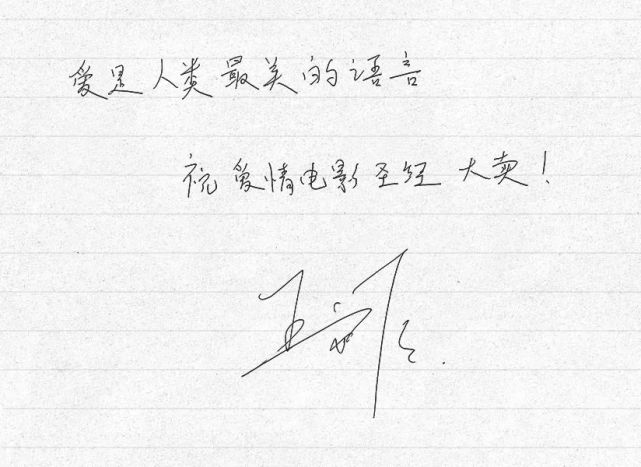 爱是人类最美的语言
祝爱情电影圣经大卖!